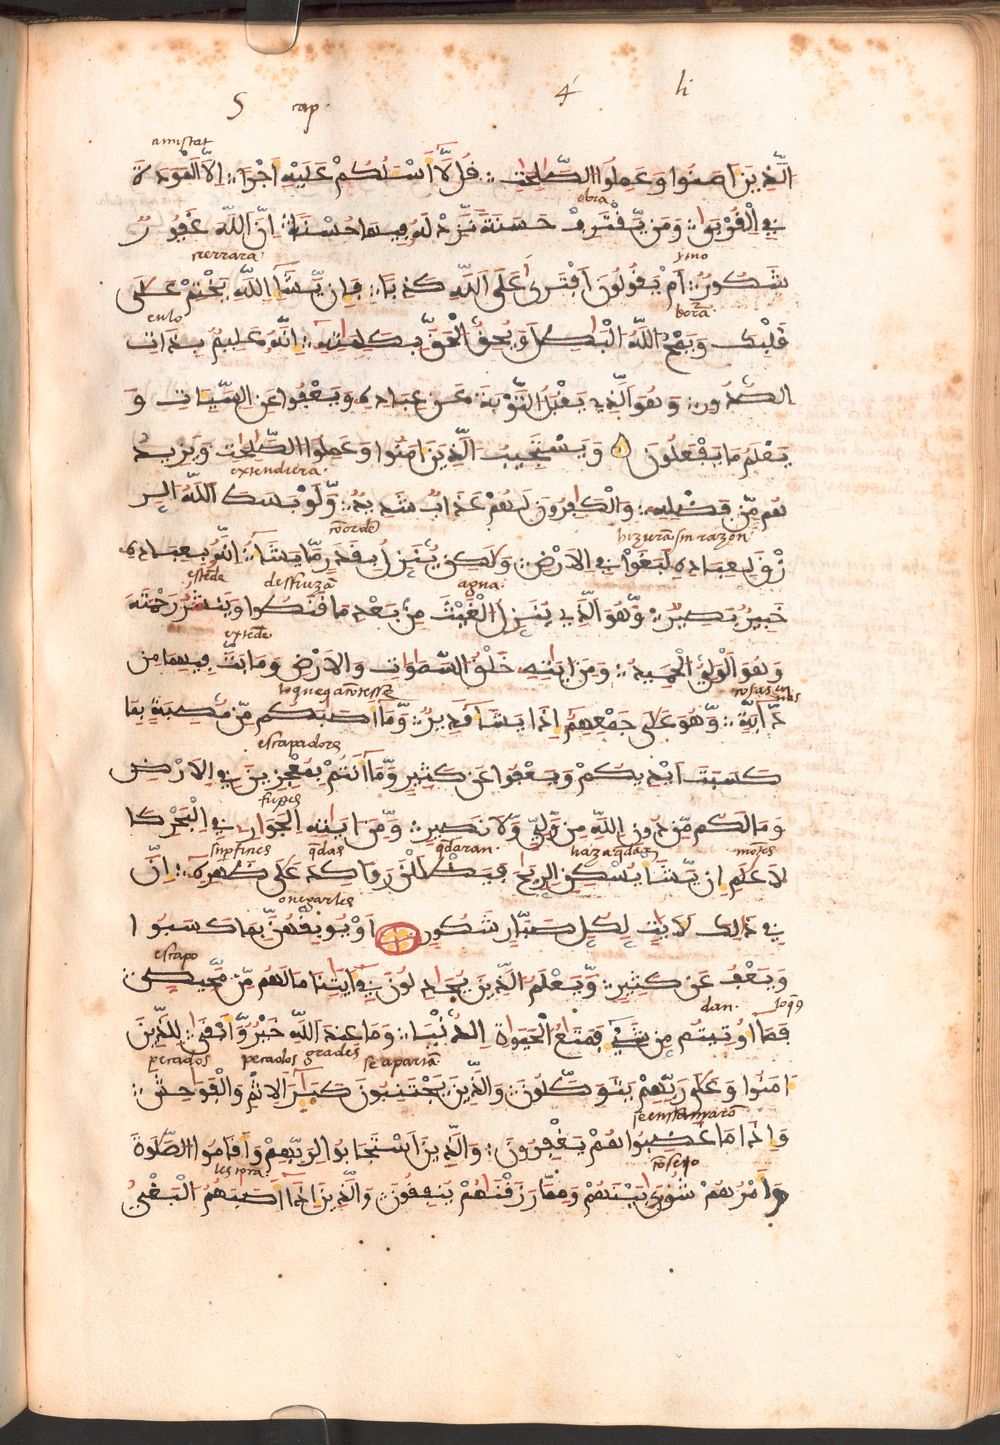 5 cap. 4 li
amistat
الَّذِينَ ءَامَنُوا وَعَمِلُوا الصَّٰلِحَٰتِ ۞ قُل لَّا أَسْـَٔلُكُمْ عَلَيْهِ أَجْرًا ۞ إِلَّا الْمَوَدَّةَ
obra
فِي الْقُرْبَىٰ ۞ وَمَن يَقْتَرِفْ حَسَنَةً نَّزِدْ لَهُ فِيهَا حُسْنًا ۞ إِنَّ اللَّهَ غَفُورٌ
serrara ymo
شَكُورٌ ۞ أَمْ يَقُولُونَ افْتَرَىٰ عَلَى اللَّهِ كَذِبًا ۞ فَإِن يَشَإِ اللَّهُ يَخْتِمْ عَلَىٰ
enlo borra
قَلْبِكَ وَيَمْحُ اللَّهُ الْبَٰطِلَ وَيُحِقُّ الْحَقَّ بِكَلِمَٰتِهِ ۞ إِنَّهُ عَلِيمٌ بِذَاتِ
الصُّدُورِ ۞ وَهُوَ الَّذِي يَقْبَلُ التَّوْبَةَ عَنْ عِبَادِهِ وَيَعْفُوا عَنِ السَّيِّـَٔاتِ وَ
يَعْلَمُ مَا يَفْعَلُونَ وَيَسْتَجِيبُ الَّذِينَ ءَامَنُوا وَعَمِلُوا الصَّٰلِحَٰتِ وَيَزِيدُ
extendiera
هُم مِّن فَضْلِهِ ۞ وَالْكَٰفِرُونَ لَهُمْ عَذَابٌ شَدِيدٌ ۞ وَلَوْ بَسَطَ اللَّهُ الرِّ
cõorde hizierã sin razon
زْقَ لِعِبَادِهِ لَبَغَوْا فِي الْأَرْضِ ۞ وَلَٰكِن يُنَزِّلُ بِقَدَرٍ مَّا يَشَاءُ ۞ إِنَّهُ بِعِبَادِهِ
estẽde desfiuzã agua
خَبِيرٌ بَصِيرٌ ۞ وَهُوَ الَّذِي يُنَزِّلُ الْغَيْثَ مِن بَعْدِ مَا قَنَطُوا وَيَنشُرُ رَحْمَتَهُ
extẽde
وَهُوَ الْوَلِيُّ الْحَمِيدُ ۞ وَمِنْ ءَايَٰتِهِ خَلْقُ السَّمَٰوَٰتِ وَالْأَرْضِ وَمَا بَثَّ فِيهِمَا مِن
دَابَّةٍ ۞ وَهُوَ عَلَىٰ جَمْعِهِمْ إِذَا يَشَاءُ قَدِيرٌ ۞ وَمَا أَصَٰبَكُم مِّن مُّصِيبَةٍ بِمَا
escapadores
كَسَبَتْ أَيْدِيكُمْ وَيَعْفُوا عَن كَثِيرٍ وَمَا أَنتُم بِمُعْجِزِينَ فِي الْأَرْضِ
وَمَا لَكُم مِّن دُونِ اللَّهِ مِن وَلِيٍّ وَلَا نَصِيرٍ ۞ وَمِنْ ءَايَٰتِهِ الْجَوَارِ فِي الْبَحْرِ كَا
q̃das q̃daran haza q̃das mõtes
لَأَعْلَٰمِ إِن يَشَأْ يُسْكِنِ الرِّيَٰحَ فَيَظْلَلْنَ رَوَاكِدَ عَلَىٰ ظَهْرِهِ ۞ إِنَّ
o negarles
فِي ذَٰلِكَ لَأَيَٰتٍ لِّكُلِّ صَبَّارٍ شَكُورٍ أَوْ يُوبِقْهُنَّ بِمَا كَسَبُوا
escapo
وَيَعْفُ عَن كَثِيرٍ ۞ وَيَعْلَمُ الَّذِينَ يُجَٰدِلُونَ فِي ءَايَٰتِنَا مَا لَهُم مِّن مَّحِيصٍ ۞
dan. loq̃
فَمَا أُوتِيتُم مِّن شَيْءٍ فَمَتَٰعُ الْحَيَوٰةِ الدُّنْيَا ۞ وَمَا عِندَ اللَّهِ خَيْرٌ وَأَبْقَىٰ ۞ لِلَّذِينَ
pecados pecados grãdes se apartã
ءَامَنُوا وَعَلَىٰ رَبِّهِمْ يَتَوَكَّلُونَ ۞ وَالَّذِينَ يَجْتَنِبُونَ كَبَٰٓئِرَ الْإِثْمِ وَالْفَوَٰحِشَ ۞
se ensañarõ
وَإِذَا مَا غَضِبُوا هُمْ يَغْفِرُونَ ۞ وَالَّذِينَ اسْتَجَابُوا لِرَبِّهِمْ وَأَقَامُوا الصَّلَوٰةَ
cõseio
وَأَمْرُهُمْ شُورَىٰ بَيْنَهُمْ وَمِمَّا رَزَقْنَٰهُمْ يُنفِقُونَ ۞ وَالَّذِينَ إِذَا أَصَابَهُمُ الْبَغْيُ